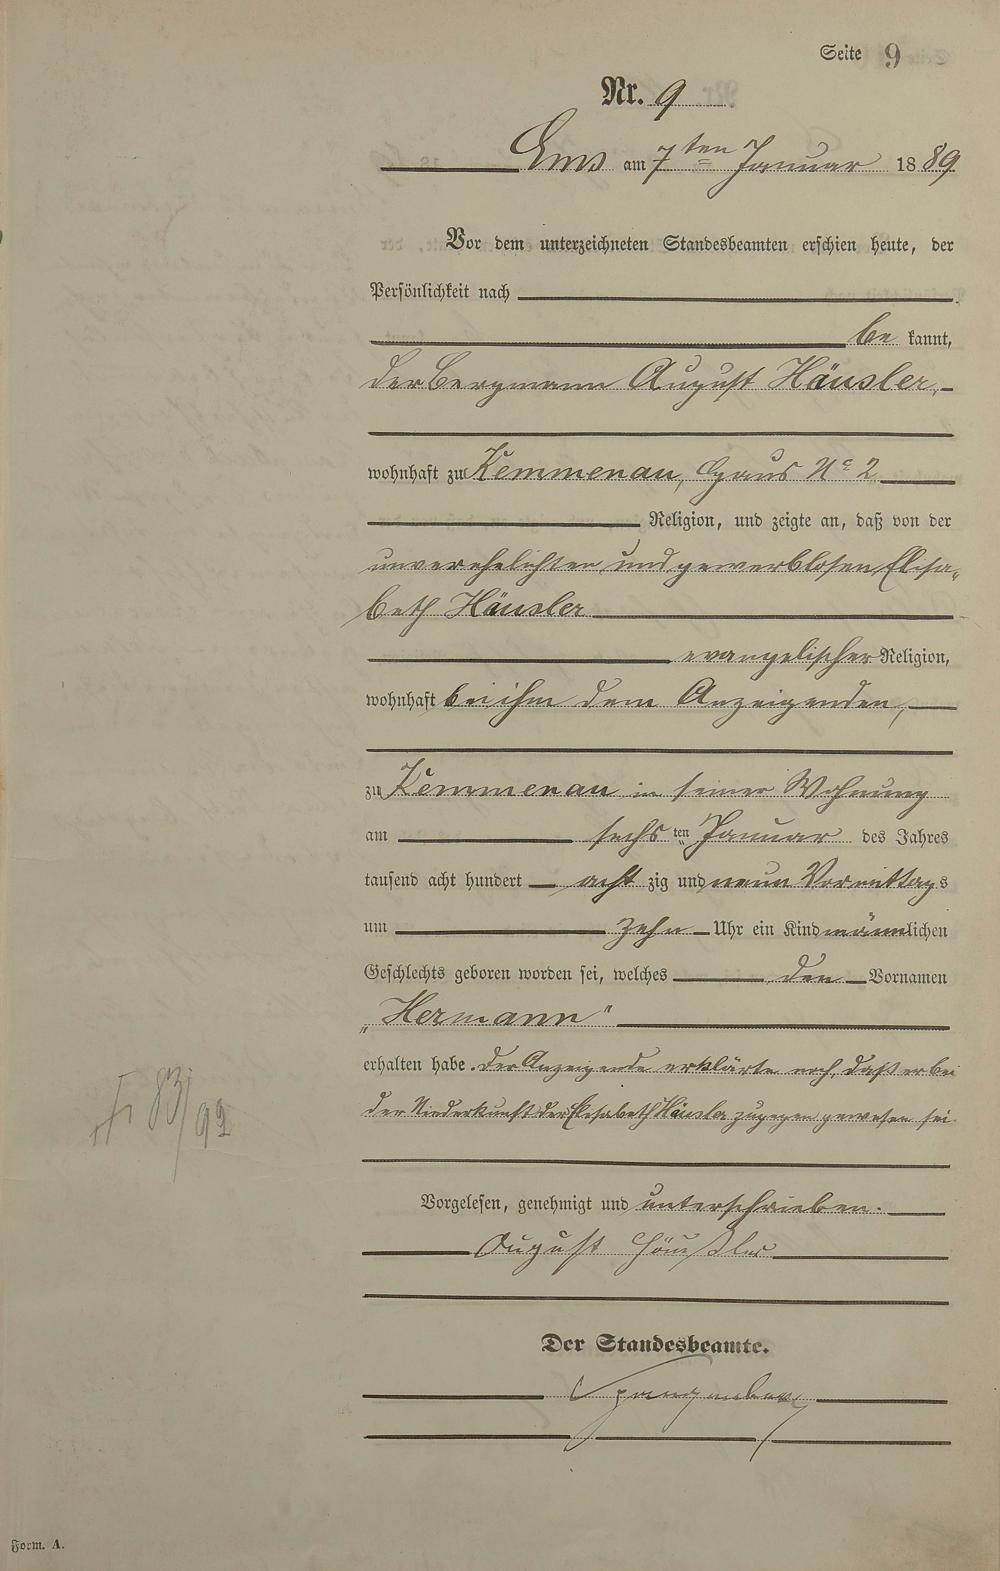 Seite 9
Nr. 9
Ems am 7ten Januar 1889
Vor dem unterzeichneten Standesbeamten erschien heute, der
Persönlichkeit nach
be kannt,
der Bergmann August Häusler,
wohnhaft zu Kemmenau, Haus No 2
Religion, und zeigte an, daß von der
unverehelichten und gewerblosen Elisa-
beth Häusler
evangelischer Religion,
wohnhaft bei ihm dem Anzeigenden,
zu Kemmenau in seiner Wohnung
am sechs ten Januar des Jahres
tausend acht hundert acht zig und neun Vormittags
um zehn Uhr ein Kind männlichen
Geschlechts geboren worden sei, welches den Vornamen
„Hermann"
erhalten habe. Der Anzeigende erklärte noch, daß er bei
der Niederkunft der Elisabeth Häusler zugegen gewesen sei.
Vorgelesen, genehmigt und unterschrieben.
August Häußler
Der Standesbeamte.
83/92
Form. A.